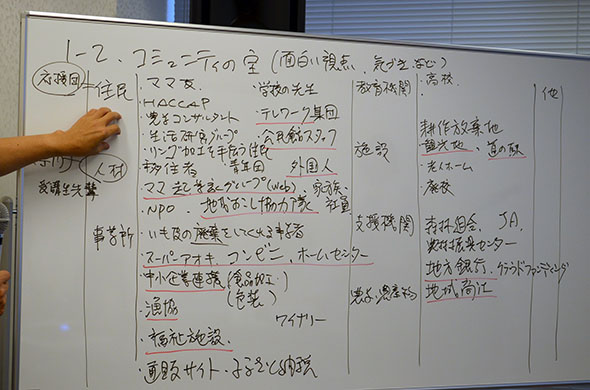 1-2. コミュニティの宝(面白い視点、気づき含む)
応援団 = 住民
・ママ友
・学校の先生
・HACCAP
・農業コンサルタント
・テレワーク集団
・生活研究グループ
・公民館スタッフ
・リンゴ加工を手伝う住民
人材
移住者
青年団
外国人
受講生先輩
(web)、家族、
・NPO
・地域おこし協力隊
社員
事業所
・いも皮の廃棄をしてくれる事業者
・スーパーアオキ、コンビニ、ホームセンター
・中小企業連携(食品加工)
(包装)
・漁協
ワイナリー
・福祉施設
・直販サイト・
教育機関
・高校
施設
耕作放棄地
観光地、道の駅
・老人ホーム
・廃校
支援機関
森林組合、JA、
農村振興センター
地方銀行、クラウドファンディング
地域商社
他